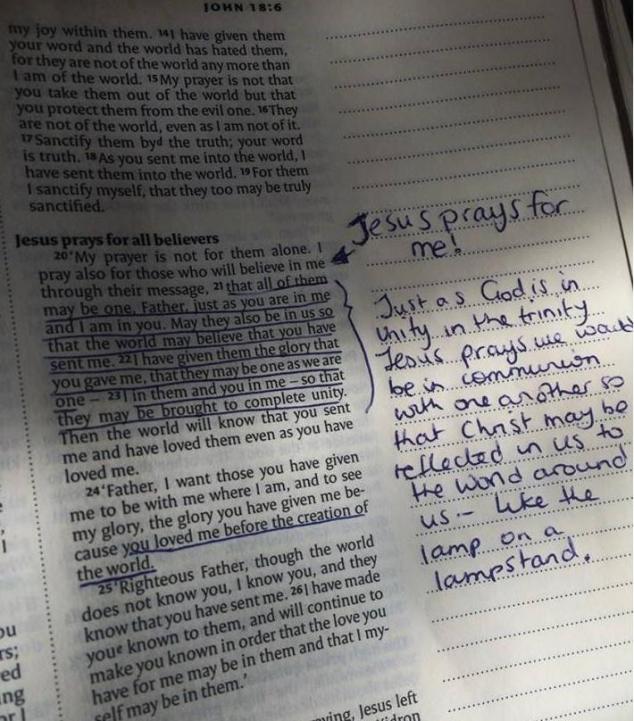 JOHN 18:6
my joy within them. 14I have given them
your word and the world has hated them,
for they are not of the world any more than
I am of the world. 15My prayer is not that
you take them out of the world but that
you protect them from the evil one. 16They
are not of the world, even as I am not of it.
17Sanctify them byd the truth; your word
is truth. 18As you sent me into the world, I
have sent them into the world. 19For them
I sanctify myself, that they too may be truly
sanctified.
Jesus prays for all believers
20‘My prayer is not for them alone. I
pray also for those who will believe in me
through their message, 21that all of them
may be one, Father, just as you are in me
and I am in you. May they also be in us so
that the world may believe that you have
sent me. 22I have given them the glory that
you gave me, that they may be one as we are
one – 23I in them and you in me – so that
they may be brought to complete unity.
Then the world will know that you sent
me and have loved them even as you have
loved me.
24‘Father, I want those you have given
me to be with me where I am, and to see
my glory, the glory you have given me be-
cause you loved me before the creation of
the world.
25‘Righteous Father, though the world
does not know you, I know you, and they
know that you have sent me. 26I have made
youe known to them, and will continue to
make you known in order that the love you
have for me may be in them and that I my-
self may be in them.’
Jesus left
Jesus prays for
me!
Just as God is in
unity in the trinity
Jesus prays we would
be in communion
with one another so
that Christ may be
reflected in us to
the world around
us - like the
lamp on a
lampstand.